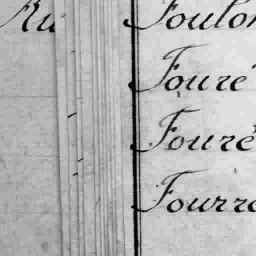 Ru Foulon
Fouré
Fouré
Fourre